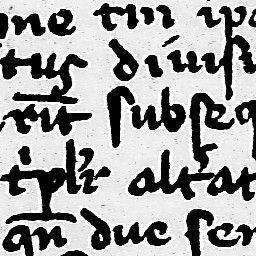 me tm ipo
tus diuisi
rit subseq
tpl'r alt'at
qn due sen